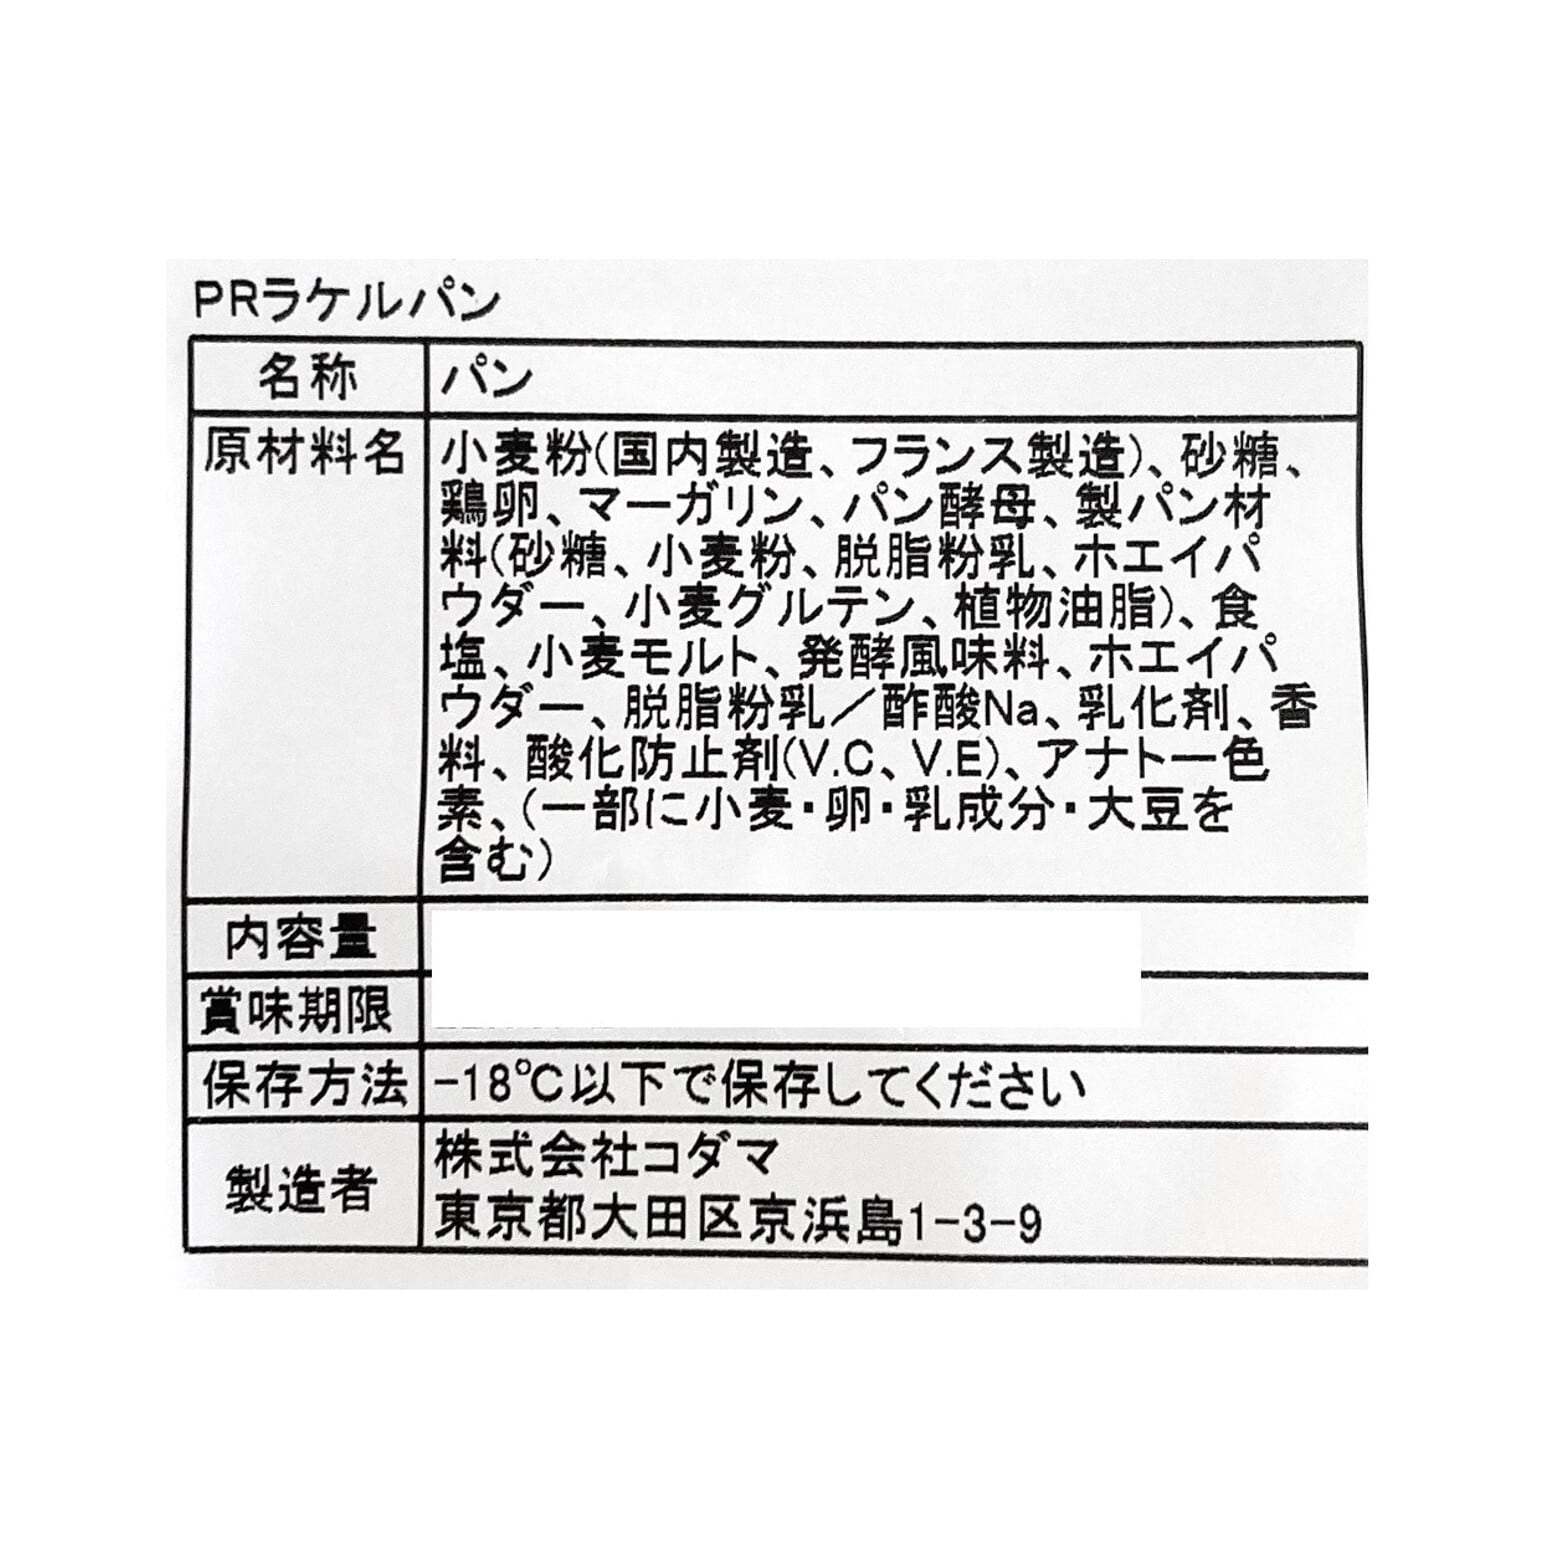 PRラケルパン
名称 パン
原材料名 小麦粉(国内製造、フランス製造)、砂糖、
鶏卵、マーガリン、パン酵母、製パン材
料(砂糖、小麦粉、脱脂粉乳、ホエイパ
ウダー、小麦グルテン、植物油脂)、食
塩、小麦モルト、発酵風味料、ホエイパ
ウダー、脱脂粉乳／酢酸Na、乳化剤、香
料、酸化防止剤(V.C、V.E)、アナトー色
素、(一部に小麦・卵・乳成分・大豆を
含む)
内容量
賞味期限
保存方法 -18℃以下で保存してください
製造者 株式会社コダマ
東京都大田区京浜島1-3-9